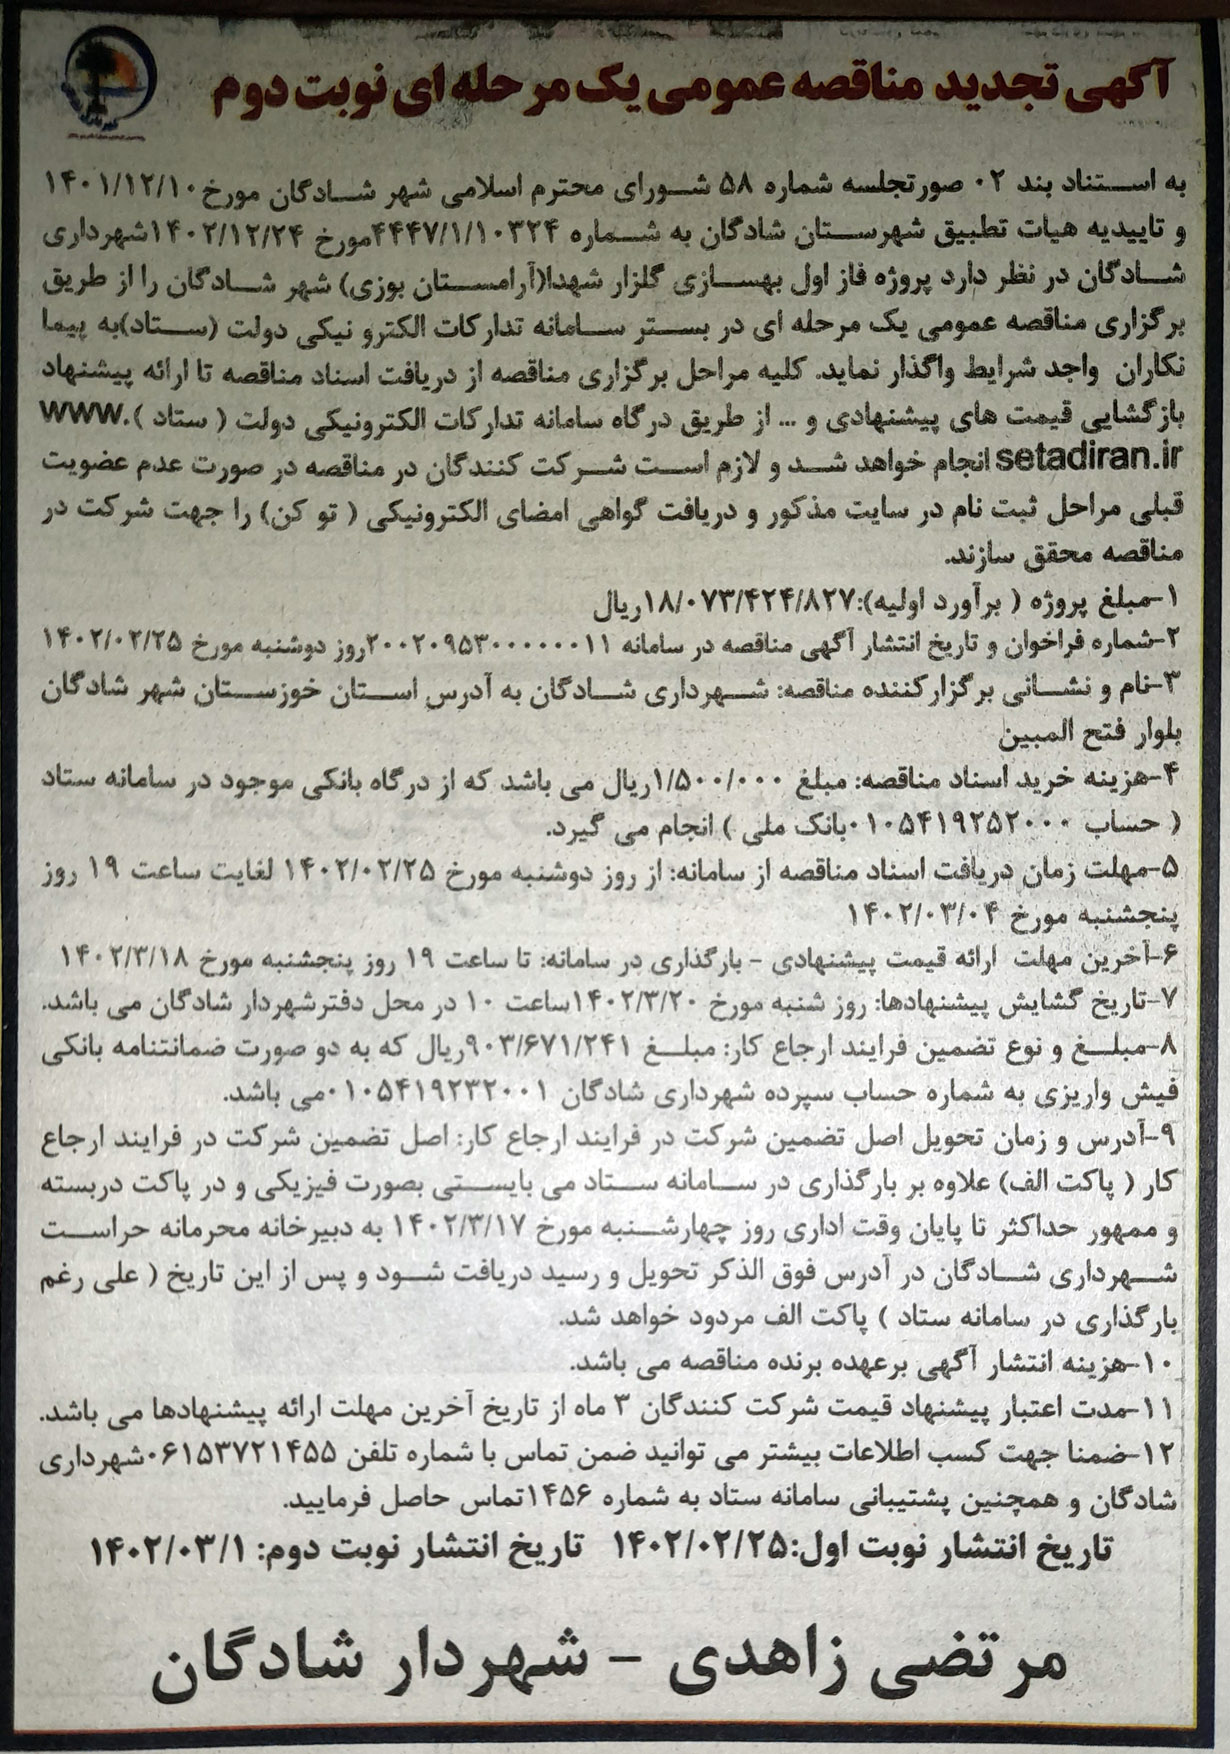 آگهی تجدید مناقصه عمومی یک مرحله ای نوبت دوم
به استناد بند ۰۲ صورتجلسه شماره ۵۸ شورای محترم اسلامی شهر شادگان مورخ ۱۴۰۱/۱۲/۱۰
و تاییدیه هیات تطبیق شهرستان شادگان به شماره ۴۴۴۷/۱/۱۰۳۲۴مورخ ۱۴۰۲/۱۲/۲۴شهرداری
شادگان در نظر دارد پروژه فاز اول بهسازی گلزار شهدا(آرامستان بوزی) شهر شادگان را از طریق
برگزاری مناقصه عمومی یک مرحله ای در بستر سامانه تدارکات الکترو نیکی دولت (ستاد)به پیما
نکاران واجد شرایط واگذار نماید. کلیه مراحل برگزاری مناقصه از دریافت اسناد مناقصه تا ارائه پیشنهاد
بازگشایی قیمت های پیشنهادی و ... از طریق درگاه سامانه تدارکات الکترونیکی دولت ( ستاد ).WWW
setadiran.ir انجام خواهد شد و لازم است شرکت کنندگان در مناقصه در صورت عدم عضویت
قبلی مراحل ثبت نام در سایت مذکور و دریافت گواهی امضای الکترونیکی ( تو کن) را جهت شرکت در
مناقصه محقق سازند.
۱-مبلغ پروژه ( برآورد اولیه):۱۸/۰۷۳/۴۲۴/۸۲۷ریال
۲-شماره فراخوان و تاریخ انتشار آگهی مناقصه در سامانه ۲۰۰۲۰۹۵۳۰۰۰۰۰۰۱۱روز دوشنبه مورخ ۱۴۰۲/۰۲/۲۵
۳-نام و نشانی برگزارکننده مناقصه: شهرداری شادگان به آدرس استان خوزستان شهر شادگان
بلوار فتح المبین
۴-هزینه خرید اسناد مناقصه: مبلغ ۱/۵۰۰/۰۰۰ریال می باشد که از درگاه بانکی موجود در سامانه ستاد
( حساب ۰۱۰۵۴۱۹۲۵۲۰۰۰بانک ملی ) انجام می گیرد.
۵-مهلت زمان دریافت اسناد مناقصه از سامانه: از روز دوشنبه مورخ ۱۴۰۲/۰۲/۲۵ لغایت ساعت ۱۹ روز
پنجشنبه مورخ ۱۴۰۲/۰۳/۰۴
۶-آخرین مهلت ارائه قیمت پیشنهادی - بارگذاری در سامانه: تا ساعت ۱۹ روز پنجشنبه مورخ ۱۴۰۲/۳/۱۸
۷-تاریخ گشایش پیشنهادها: روز شنبه مورخ ۱۴۰۲/۳/۲۰ساعت ۱۰ در محل دفترشهردار شادگان می باشد.
۸-مبلغ و نوع تضمین فرایند ارجاع کار: مبلغ ۹۰۳/۶۷۱/۲۴۱ریال که به دو صورت ضمانتنامه بانکی
فیش واریزی به شماره حساب سپرده شهرداری شادگان ۰۱۰۵۴۱۹۲۳۲۰۰۱می باشد.
۹-آدرس و زمان تحویل اصل تضمین شرکت در فرایند ارجاع کار: اصل تضمین شرکت در فرایند ارجاع
کار ( پاکت الف) علاوه بر بارگذاری در سامانه ستاد می بایستی بصورت فیزیکی و در پاکت دربسته
و ممهور حداکثر تا پایان وقت اداری روز چهارشنبه مورخ ۱۴۰۲/۳/۱۷ به دبیرخانه محرمانه حراست
شهرداری شادگان در آدرس فوق الذکر تحویل و رسید دریافت شود و پس از این تاریخ ( علی رغم
بارگذاری در سامانه ستاد ) پاکت الف مردود خواهد شد.
۱۰-هزینه انتشار آگهی برعهده برنده مناقصه می باشد.
۱۱-مدت اعتبار پیشنهاد قیمت شرکت کنندگان ۳ ماه از تاریخ آخرین مهلت ارائه پیشنهادها می باشد.
۱۲-ضمنا جهت کسب اطلاعات بیشتر می توانید ضمن تماس با شماره تلفن ۰۶۱۵۳۷۲۱۴۵۵شهرداری
شادگان و همچنین پشتیبانی سامانه ستاد به شماره ۱۴۵۶تماس حاصل فرمایید.
تاریخ انتشار نوبت اول:۱۴۰۲/۰۲/۲۵ تاریخ انتشار نوبت دوم: ۱۴۰۲/۰۳/۱
مرتضی زاهدی - شهردار شادگان